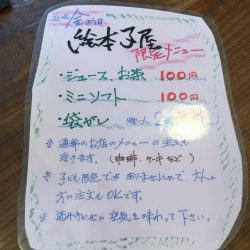 金曜日
絵本子屋
限定メニュー
・ジュース、お茶 100円
・ミニソフト 100円
・袋ガレ
※ 通常のお店のメニューの注文も
受けます。(珈琲、ケーキなど)
※ 子ども限定ではありませんので、大人
の方の注文もOKです。
※ 読みきかせの空気を味わって下さい。